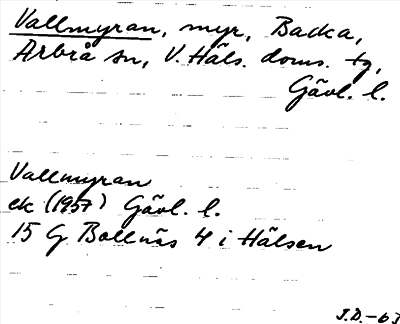 Vallmyran, myr, Backa,
Arbrå sn, V. Häls. doms. tg,
Gävl. l.
Vallmyran
ek (1957) Gävl. l.
15 G Bollnäs 4 i Hälsen
J.D.-63